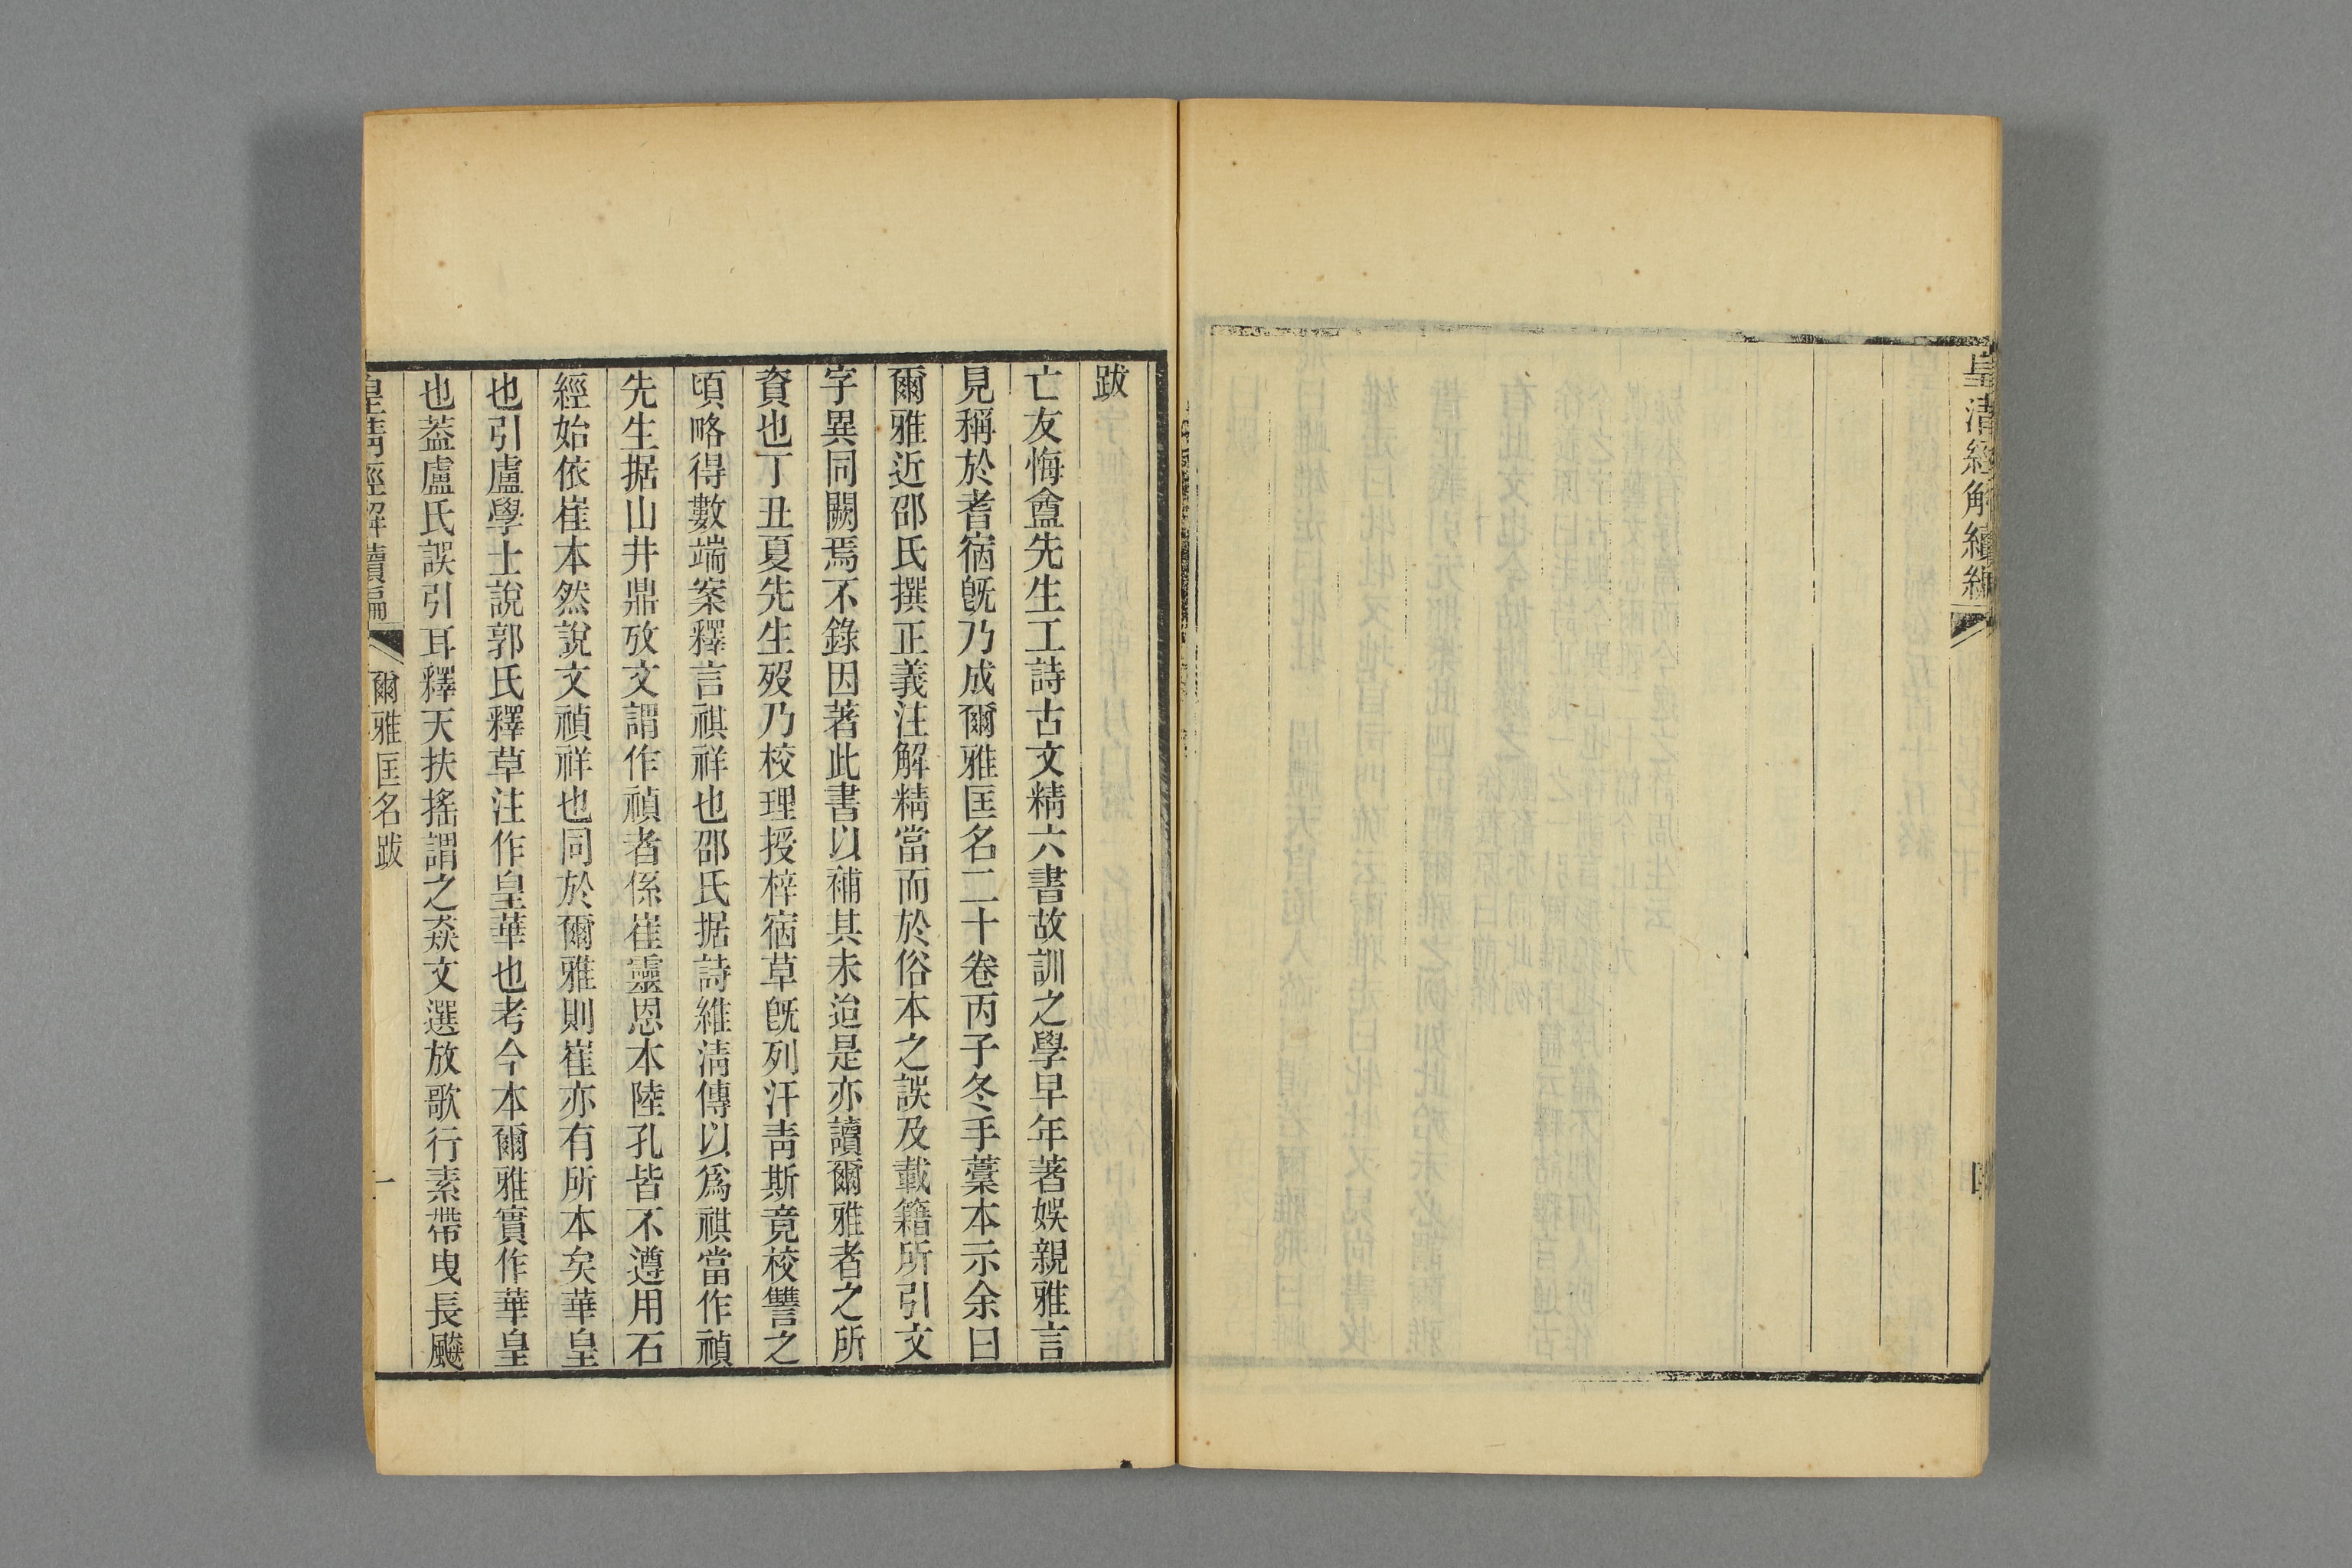 皇清經解續編
跋
亡友悔盦先生工詩古文精六書故訓之學早年著娛親雅言
見稱於耆宿旣乃成爾雅匡名二十卷丙子冬手藁本示余曰
爾雅近邵氏撰正義注解精當而於俗本之誤及載籍所引文
字異同闕焉不錄因著此書以補其未迨是亦讀爾雅者之所
資也丁丑夏先生歿乃校理授梓宿草旣列汗靑斯竟校讐之
頃略得數端案釋言祺祥也邵氏据詩維淸傳以爲祺當作禎
先生据山井鼎攷文謂作禎者係崔靈恩本陸孔皆不遵用石
經始依崔本然說文禎祥也同於爾雅則崔亦有所本矣華皇
也引盧學士說郭氏釋草注作皇華也考今本爾雅實作華皇
也葢盧氏誤引耳釋天扶搖謂之猋文選放歌行素帶曳長飇
皇淸經解續編
爾雅匡名跋
一